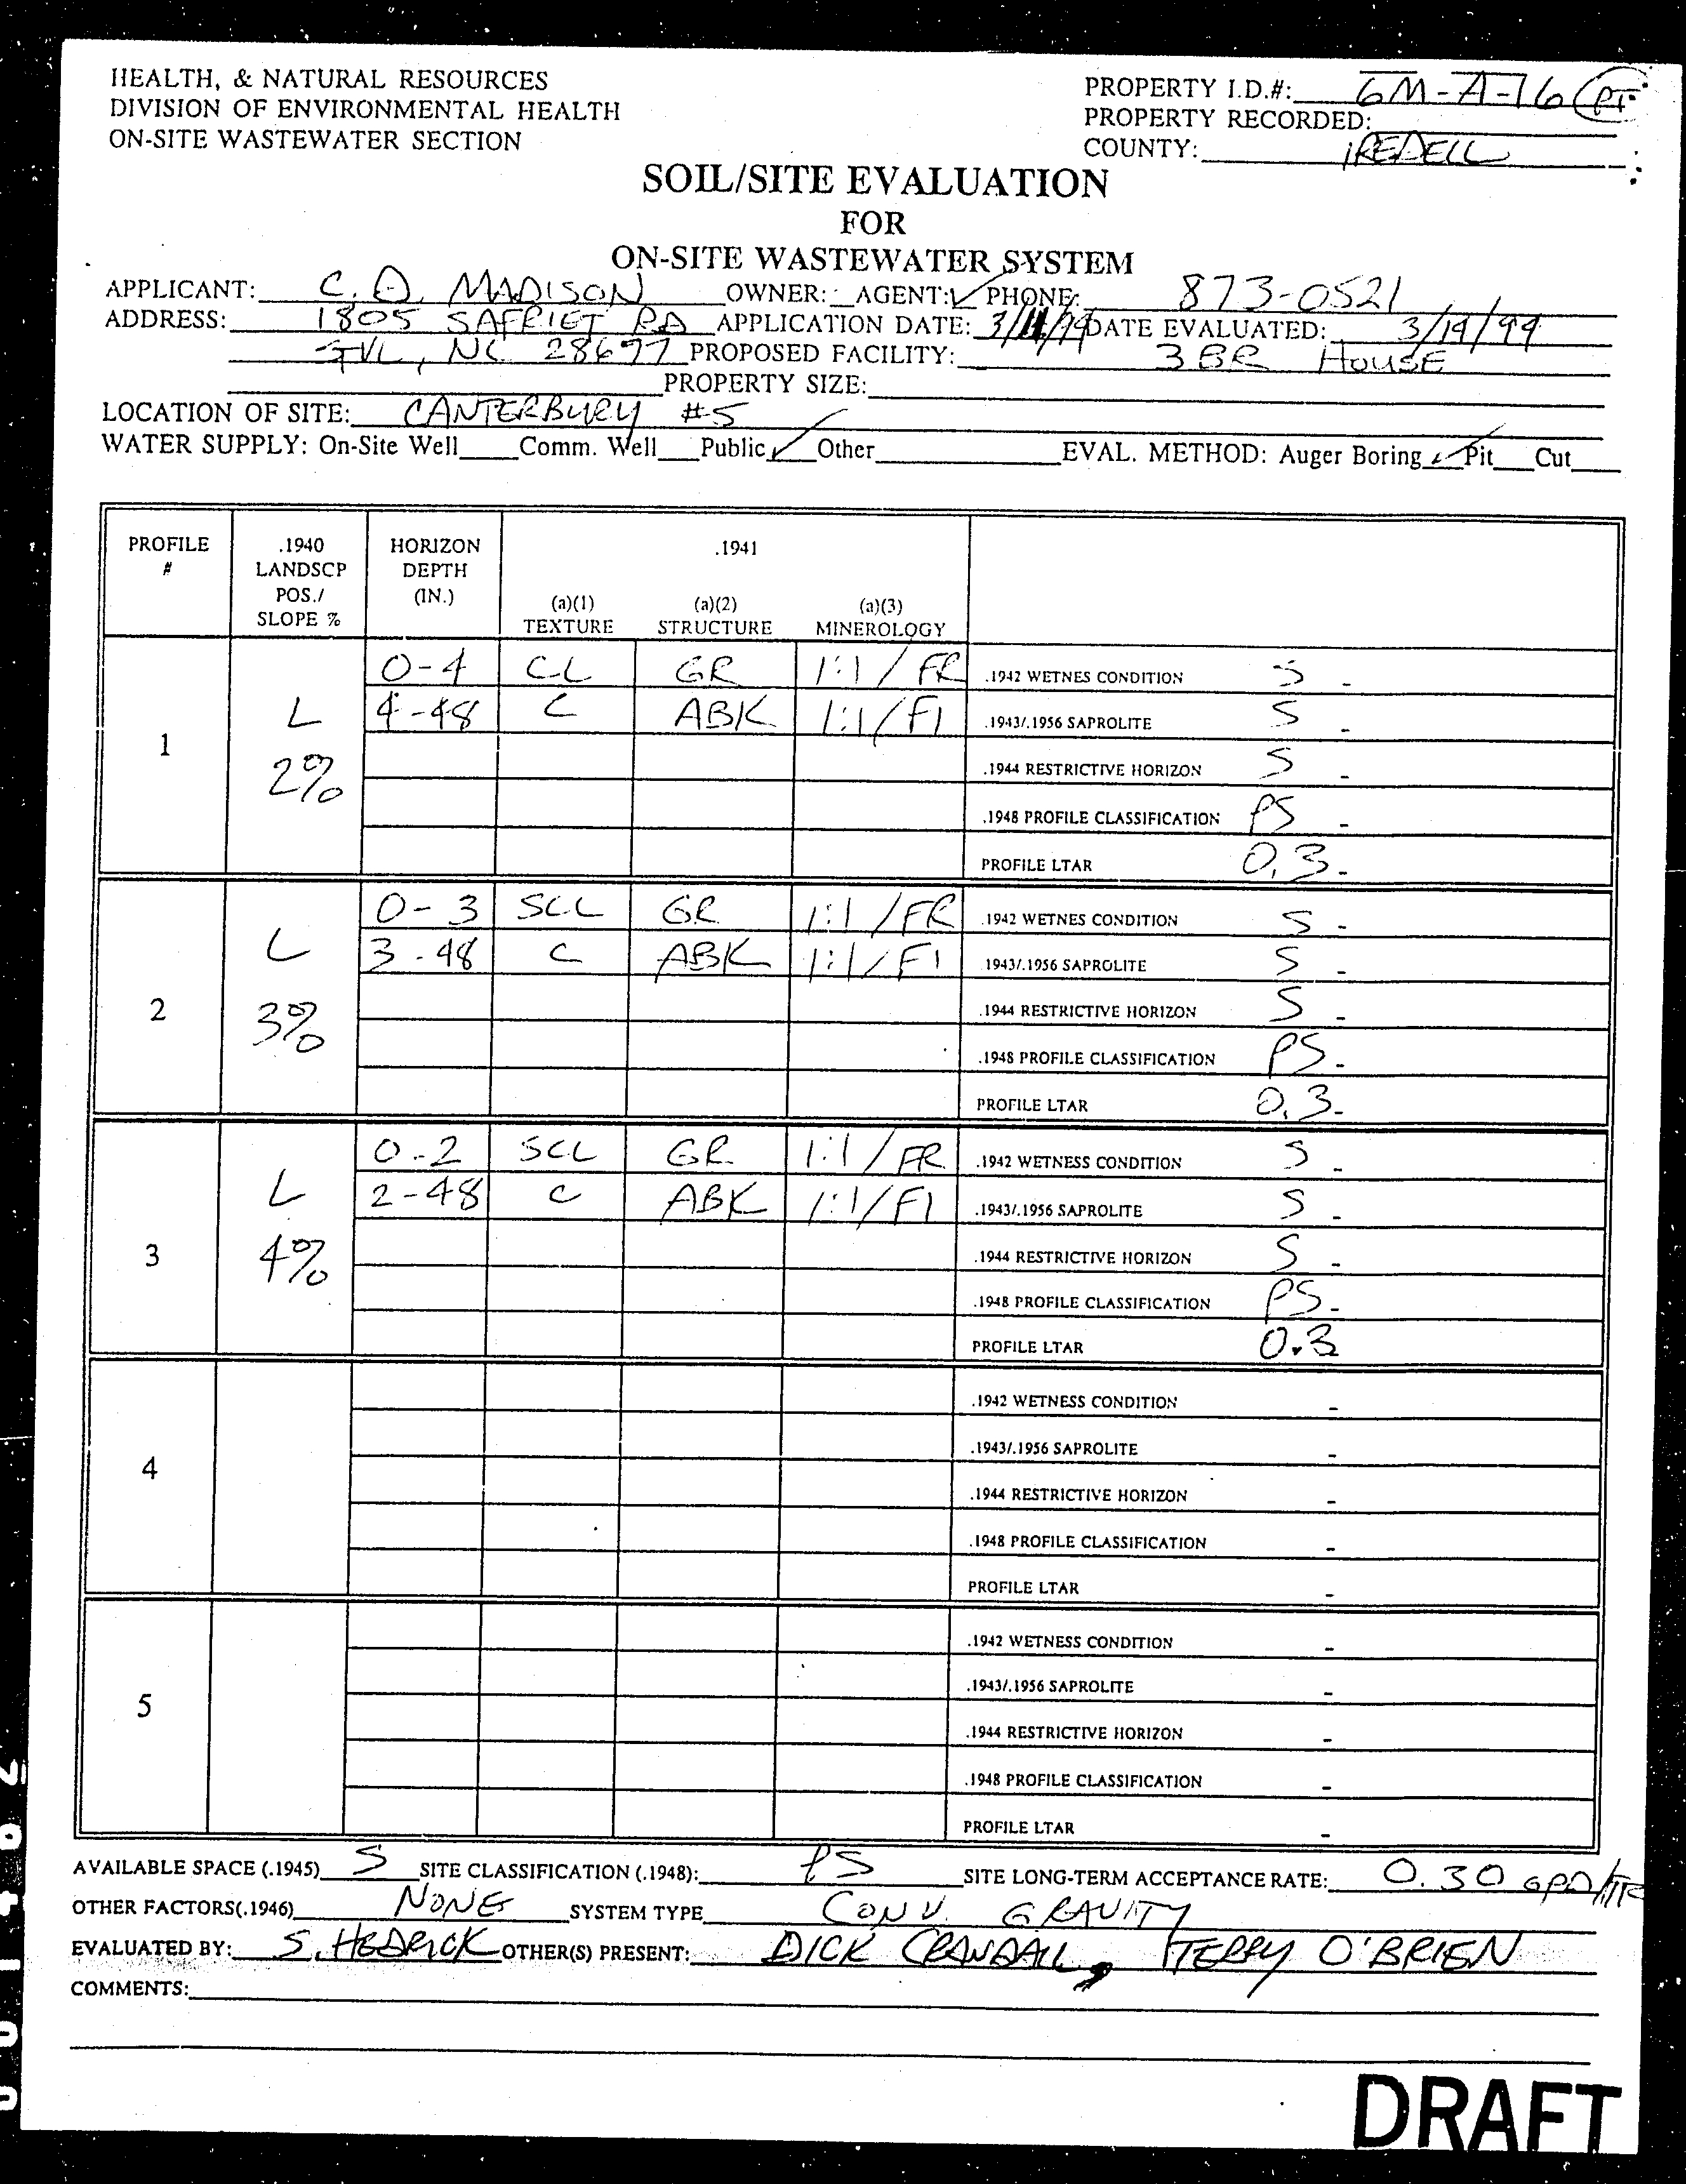 HEALTH, & NATURAL RESOURCES
DIVISION OF ENVIRONMENTAL HEALTH
ON-SITE WASTEWATER SECTION
PROPERTY I.D.#: 6M-A-16 PT
PROPERTY RECORDED:
COUNTY: IREDELL
SOIL/SITE EVALUATION
FOR
ON-SITE WASTEWATER SYSTEM
APPLICANT: C. D. MADISON OWNER: AGENT: ✓ PHONE: 873-0521
ADDRESS: 1805 SAFRIET RD APPLICATION DATE: 3/ /99 DATE EVALUATED: 3/19/99
SVL, NC 28677 PROPOSED FACILITY: 3 BR HOUSE
PROPERTY SIZE:
LOCATION OF SITE: CANTERBURY #5
WATER SUPPLY: On-Site Well Comm. Well Public ✓ Other EVAL. METHOD: Auger Boring ✓ Pit Cut
PROFILE # .1940 LANDSCP POS./ SLOPE % HORIZON DEPTH (IN.) .1941 (a)(1) TEXTURE (a)(2) STRUCTURE (a)(3) MINEROLOGY
1 L 2%
0-4 CL GR 1:1/FR .1942 WETNES CONDITION S -
4-48 C ABK 1:1/FI .1943/.1956 SAPROLITE S -
.1944 RESTRICTIVE HORIZON S -
.1948 PROFILE CLASSIFICATION PS -
PROFILE LTAR 0.3 -
2 L 3%
0-3 SCL GR 1:1/FR .1942 WETNES CONDITION S -
3-48 C ABK 1:1/FI 1943/.1956 SAPROLITE S -
.1944 RESTRICTIVE HORIZON S -
.1948 PROFILE CLASSIFICATION PS -
PROFILE LTAR 0.3 -
3 L 4%
0-2 SCL GR 1:1/FR .1942 WETNESS CONDITION S -
2-48 C ABK 1:1/FI .1943/.1956 SAPROLITE S -
.1944 RESTRICTIVE HORIZON S -
.1948 PROFILE CLASSIFICATION PS -
PROFILE LTAR 0.3
4
.1942 WETNESS CONDITION -
.1943/.1956 SAPROLITE -
.1944 RESTRICTIVE HORIZON -
.1948 PROFILE CLASSIFICATION -
PROFILE LTAR -
5
.1942 WETNESS CONDITION -
.1943/.1956 SAPROLITE -
.1944 RESTRICTIVE HORIZON -
.1948 PROFILE CLASSIFICATION -
PROFILE LTAR -
AVAILABLE SPACE (.1945) S SITE CLASSIFICATION (.1948): PS SITE LONG-TERM ACCEPTANCE RATE: 0.30 GPD/FT2
OTHER FACTORS(.1946) NONE SYSTEM TYPE CONV. GRAVITY
EVALUATED BY: S. HEDRICK OTHER(S) PRESENT: DICK CRANDALL, TERRY O'BRIEN
COMMENTS:
DRAFT